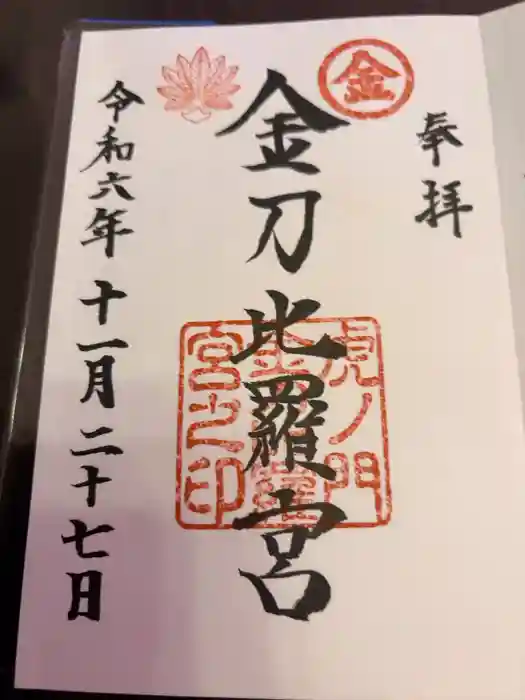 奉拝
金
金刀比羅宮
虎ノ門
宮之印
令和六年 十一月 二十七日